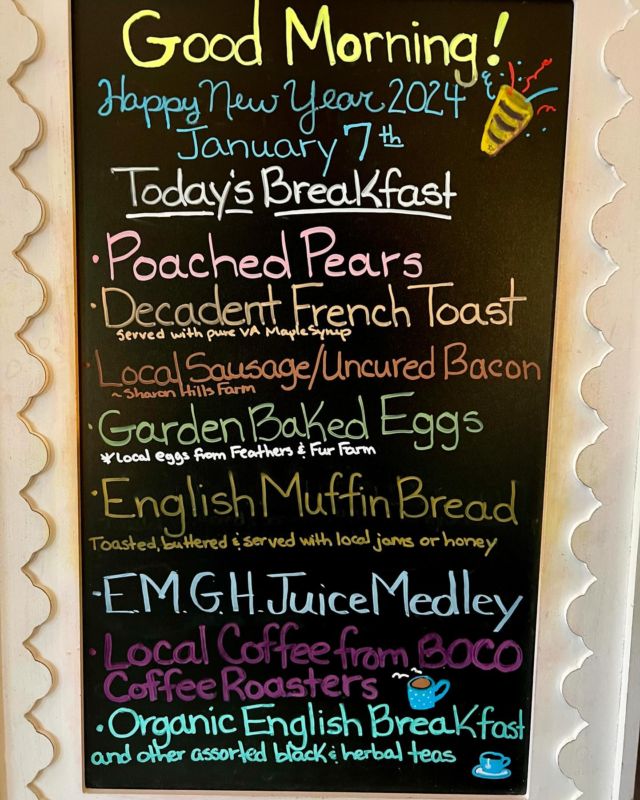 Good Morning!
Happy New Year 2024
January 7th
Today's Breakfast
• Poached Pears
• Decadent French Toast
served with pure VA Maple Syrup
• Local Sausage/Uncured Bacon
~ Sharon Hills Farm
• Garden Baked Eggs
*Local eggs from Feathers & Fur Farm
• English Muffin Bread
Toasted, buttered & served with local jams or honey
• E.M.G.H. Juice Medley
• Local Coffee from BOCO
Coffee Roasters
• Organic English Breakfast
and other assorted black & herbal teas